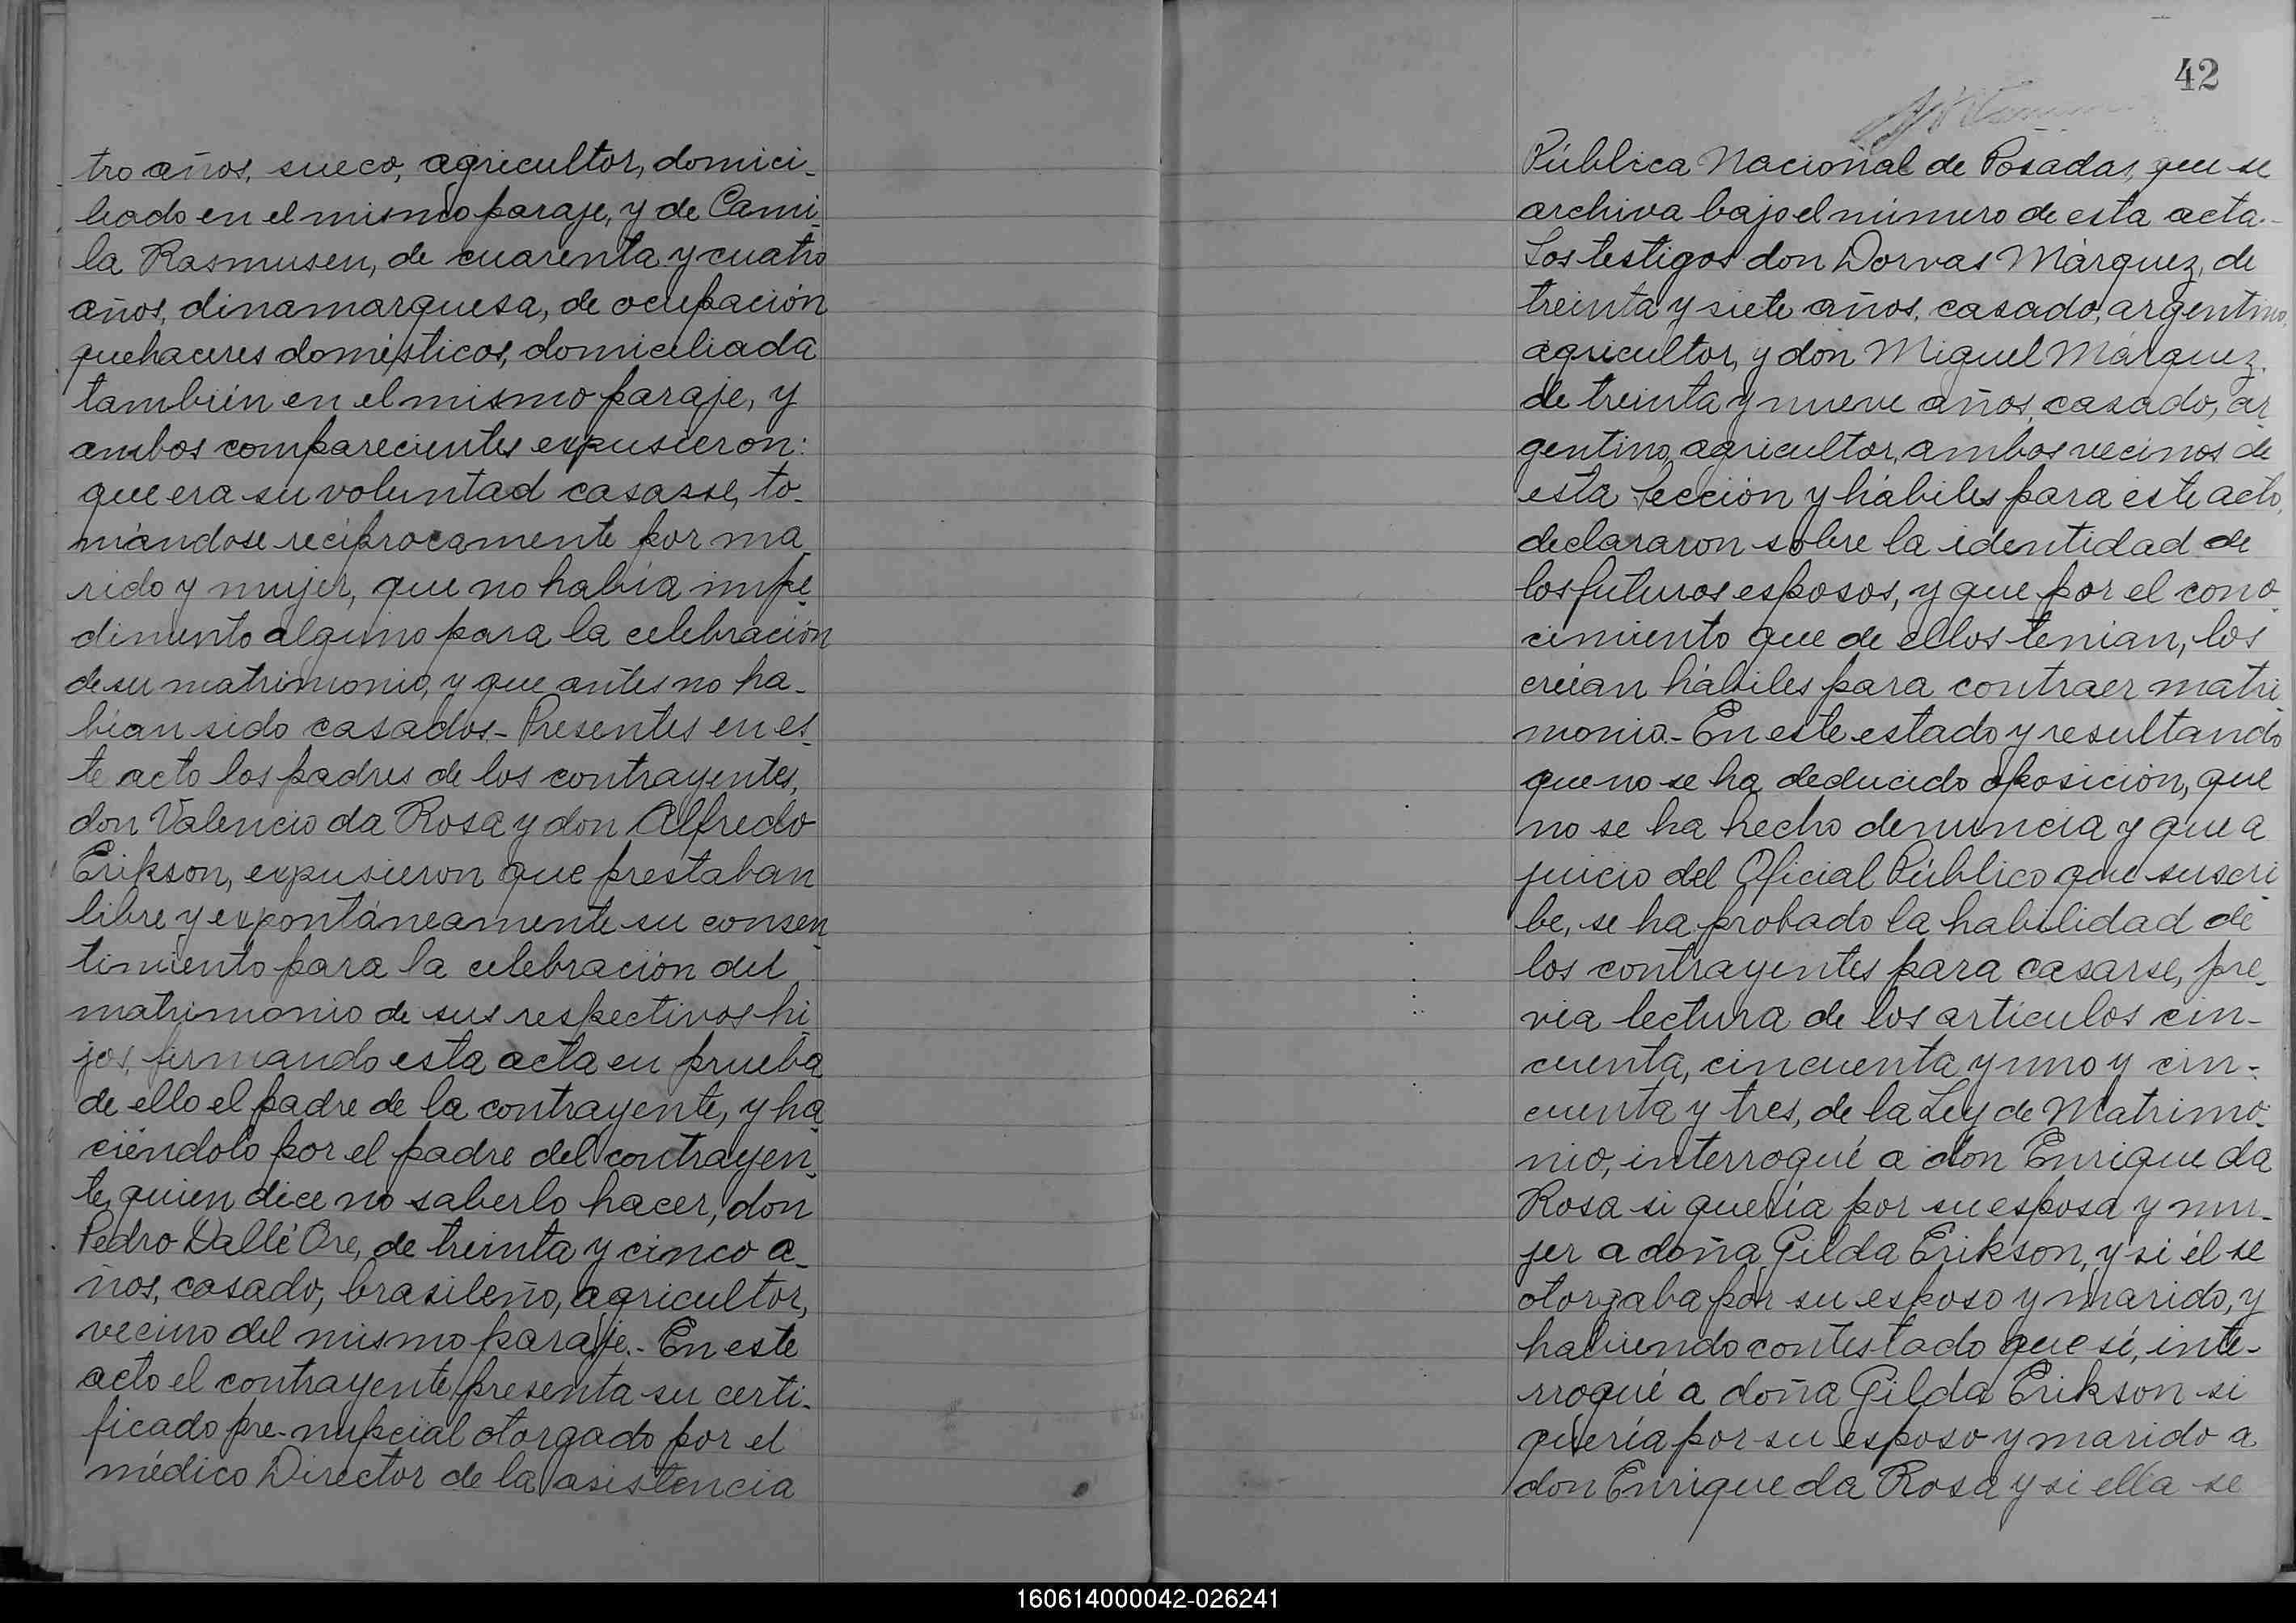 tro años, sueco, agricultor, domici-
liado en el mismo paraje, y de Cami-
la Rasmusen, de cuarenta y cuatro
años, dinamarquesa, de ocupación
quehaceres domésticos, domiciliada
también en el mismo paraje, y
ambos comparecientes expusieron:
que era su voluntad casarse, to-
mándose recíprocamente por ma-
rido y mujer, que no había impe-
dimento alguno para la celebración
de su matrimonio, y que antes no ha-
bían sido casados.- Presentes en es-
te acto los padres de los contrayentes,
don Valencio da Rosa y don Alfredo
Erikson, expusieron que prestaban
libre y expontáneamente su consen-
timiento para la celebración del
matrimonio de sus respectivos hi-
jos, firmando esta acta en prueba
de ello el padre de la contrayente, y ha-
ciéndolo por el padre del contrayen-
te, quien dice no saberlo hacer, don
Pedro Dallé Ore, de treinta y cinco a-
ños, casado, brasileño, agricultor,
vecino del mismo paraje.- En este
acto el contrayente presenta su certi-
ficado pre-nupcial otorgado por el
médico Director de la asistencia
42
Pública Nacional de Posadas, que se
archiva bajo el número de esta acta.-
Los testigos don Dorvas Márquez, de
treinta y siete años, casado, argentino,
agricultor, y don Miguel Márquez,
de treinta y nueve años, casado, ar-
gentino, agricultor, ambos vecinos de
esta sección y hábiles para este acto,
declararon sobre la identidad de
los futuros esposos, y que por el cono-
cimiento que de ellos tenían, los
creían hábiles para contraer matri-
monio.- En este estado y resultando
que no se ha deducido oposición, que
no se ha hecho denuncia y que a
juicio del Oficial Público que suscri-
be, se ha probado la habilidad de
los contrayentes para casarse, pre-
via lectura de los artículos cin-
cuenta, cincuenta y uno y cin-
cuenta y tres, de la Ley de Matrimo-
nio, interrogué a don Enrique da
Rosa si quería por su esposa y mu-
jer a doña Gilda Erikson, y si él se
otorgaba por su esposo y marido, y
habiendo contestado que sí, inte-
rrogué a doña Gilda Erikson si
quería por su esposo y marido a
don Enrique da Rosa y si ella se
160614000042-026241